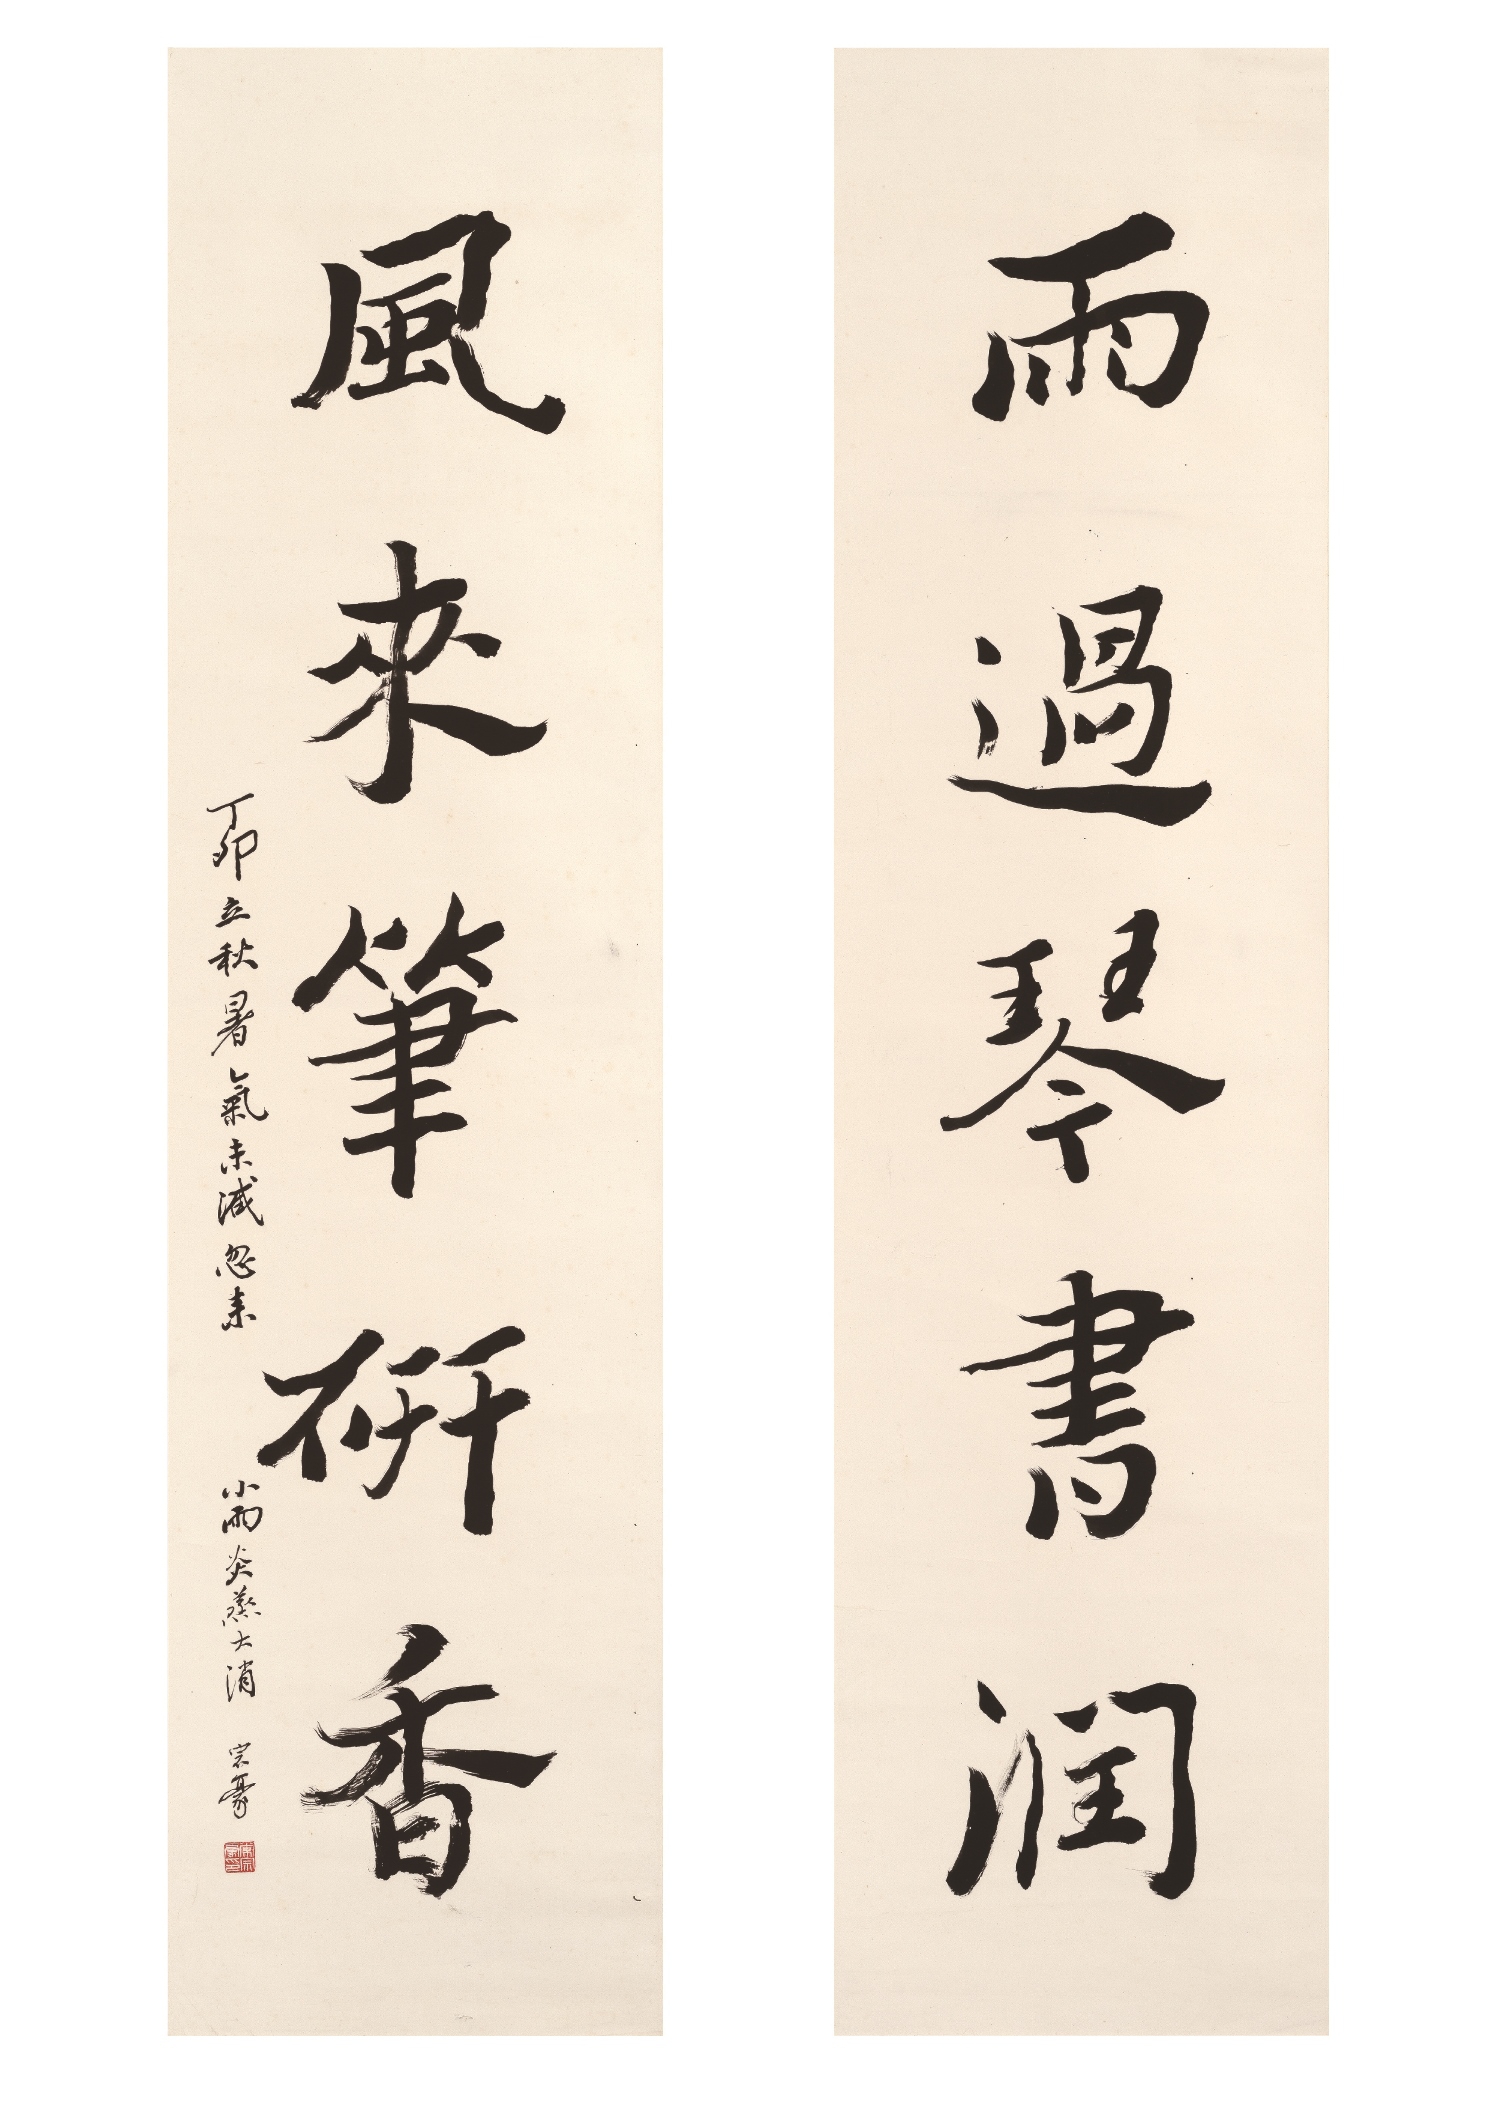 雨過琴書潤
風來筆研香
丁卯立秋暑氣未減忽来小雨炎蒸大消 宗豪